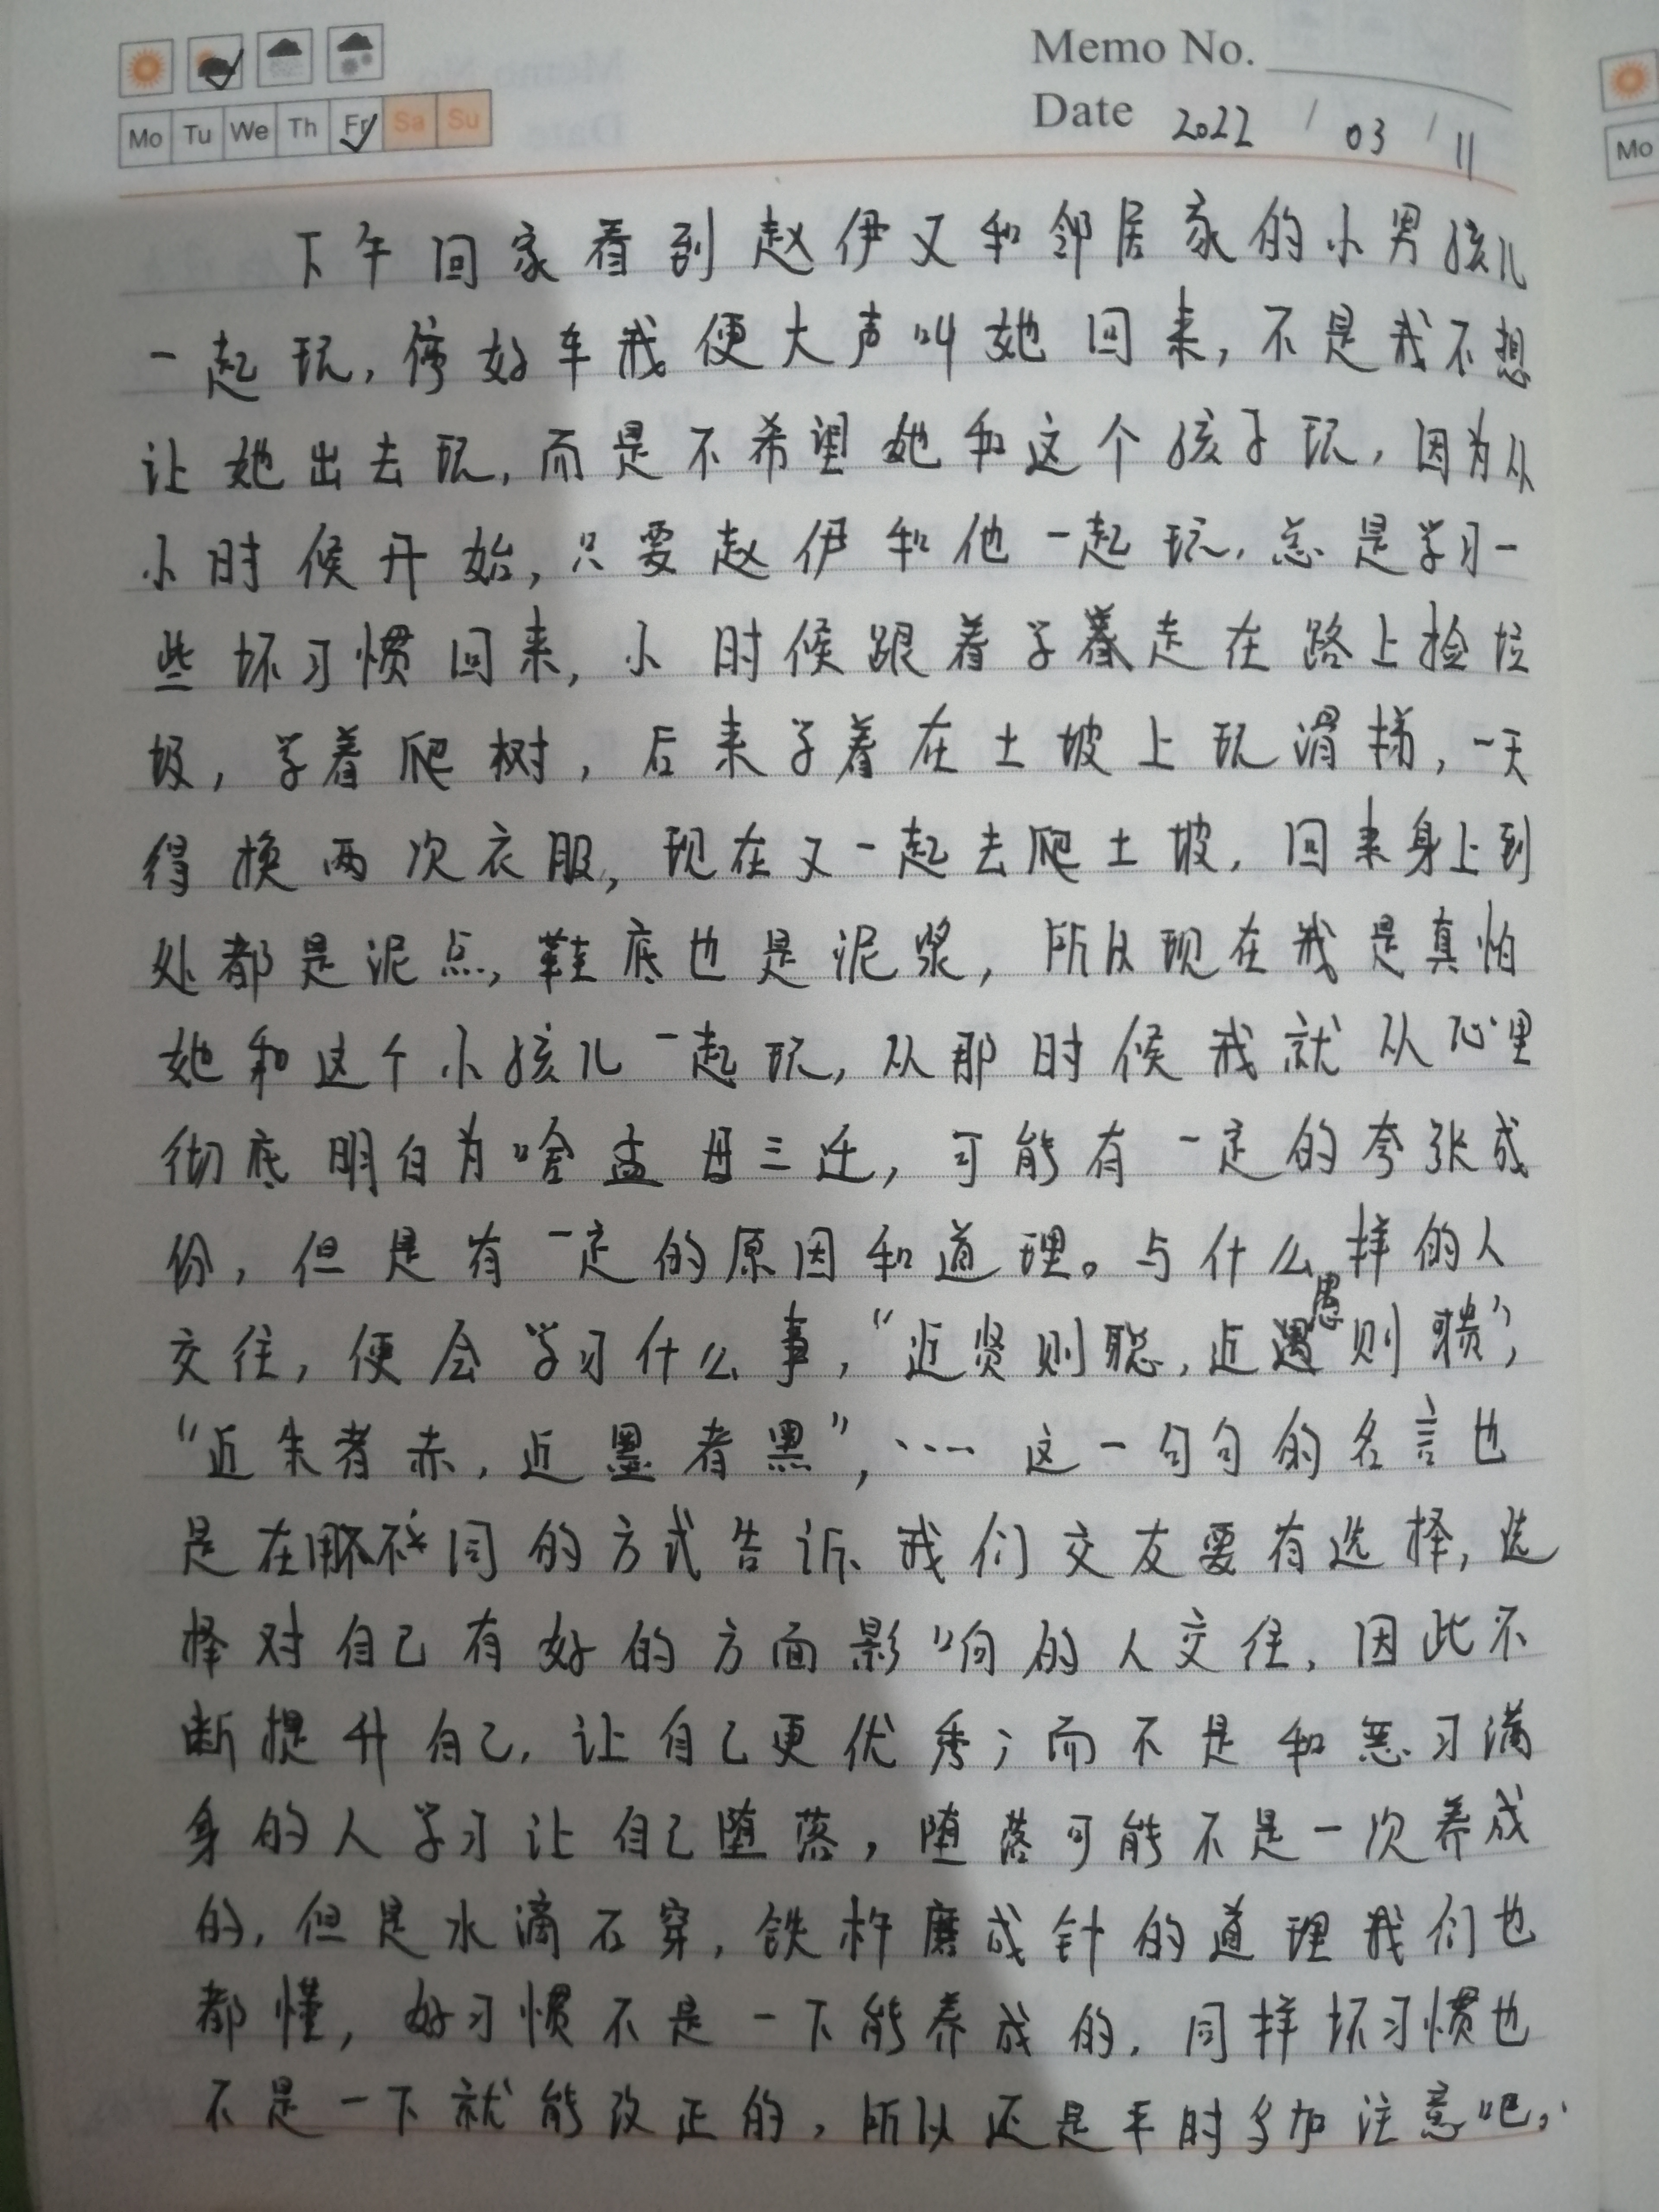 Memo No.
Mo Tu We Th Fr Sa Su
Date 2022 / 03 / 11
Mo
下午回家看到赵伊又和邻居家的小男孩儿
一起玩,停好车我便大声叫她回来,不是我不想
让她出去玩,而是不希望她和这个孩子玩,因为从
小时候开始,只要赵伊和他一起玩,总是学习一
些坏习惯回来,小时候跟着学着走在路上捡垃
圾,学着爬树,后来学着在土坡上玩滑梯,一天
得换两次衣服,现在又一起去爬土坡,回来身上到
处都是泥点,鞋底也是泥浆,所以现在我是真怕
她和这个小孩儿一起玩,从那时候我就从心里
彻底明白为啥孟母三迁,可能有一定的夸张成
份,但是有一定的原因和道理。与什么样的人
交往,便会学习什么事,“近贤则聪,近愚则聩”,
“近朱者赤,近墨者黑”,……这一句句的名言也
是在用不同的方式告诉我们交友要有选择,选
择对自己有好的方面影响的人交往,因此不
断提升自己,让自己更优秀;而不是和恶习满
身的人学习让自己堕落,堕落可能不是一次养成
的,但是水滴石穿,铁杵磨成针的道理我们也
都懂,好习惯不是一下能养成的,同样坏习惯也
不是一下就能改正的,所以还是平时多加注意吧。